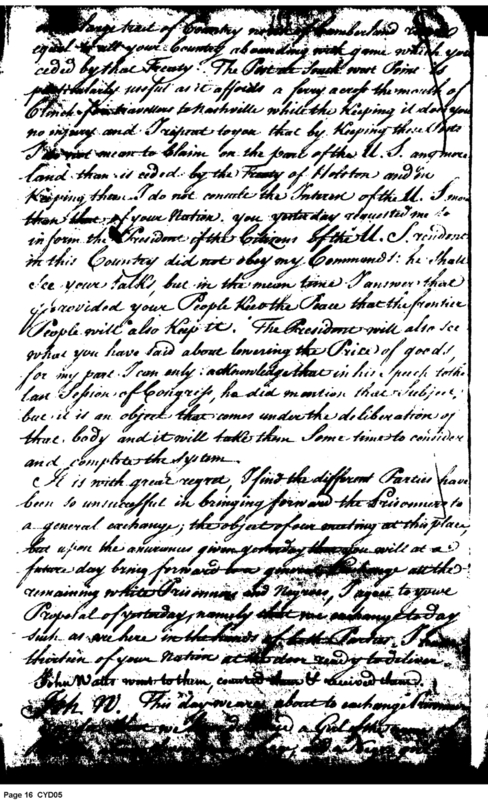 large tract of Country north of Cumberland
equal to all your Country abounding with game which you
ceded by that Treaty. The Post at South west Point is
particularly useful as it affords a ferry across the mouth of
Clinch for travellers to Nashville while the keeping it does you
no injury and I repeat to you that by keeping these Posts
I do not mean to Claim on the part of the U. S. any more
land than is ceded by the Treaty of Holston and in
keeping them I do not consult the Interest of the U. S. more
than that of your Nation. you yesterday requested me to
inform the President of the Citizens of the U. S. resident
in this Country did not obey my Commands: he shall
see your Talks, but in the mean time I answer that
provided your People keep the Peace that the frontier
People will also keep it. The President will also see
what you have said about lowering the Price of goods,
for my part I can only acknowledge that in his speech to the
last Session of Congress, he did mention that Subject;
but it is an object that comes under the deliberation of
that body and it will take them Some time to consider
and complete the system.
It is with great regret, I find the different Parties have
been so unsuccessful in bringing forward the Prisoners to
a general exchange; the object of our meeting at this place,
but upon the assurances given yesterday that you will at a
future day bring forward to a general Exchange all the
remaining white Prisoners and Negroes, I agree to your
Proposal of yesterday, namely that we exchange to day
such as are here in the hands of both Parties. I have
thirteen of your Nation at the door ready to deliver.
John Watts went to them, counted them & received them.
Joh. W. This day we are about to exchange Prisoners
that we a Girl of the
and a Negro
Page 16 CYD05